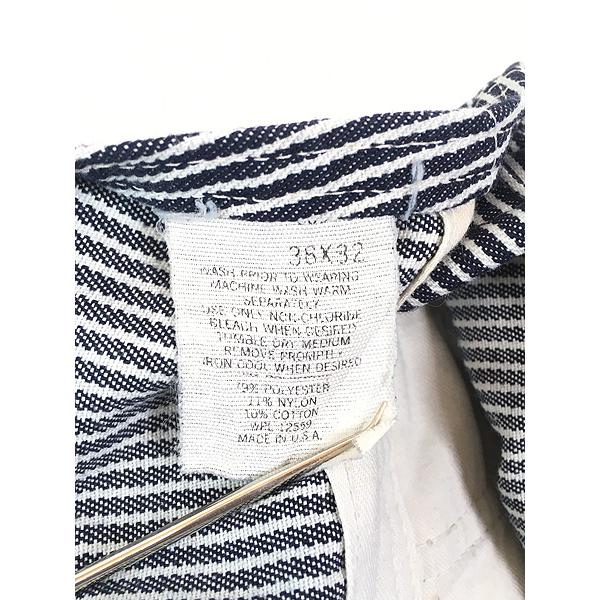 36X32
WASH PRIOR TO WEARING
MACHINE WASH WARM
SEPARATELY
USE ONLY NON-CHLORINE
BLEACH WHEN DESIRED
TUMBLE DRY MEDIUM
REMOVE PROMPTLY
IRON COOL WHEN DESIRED
79% POLYESTER
11% NYLON
10% COTTON
WPL 12559
MADE IN U.S.A.